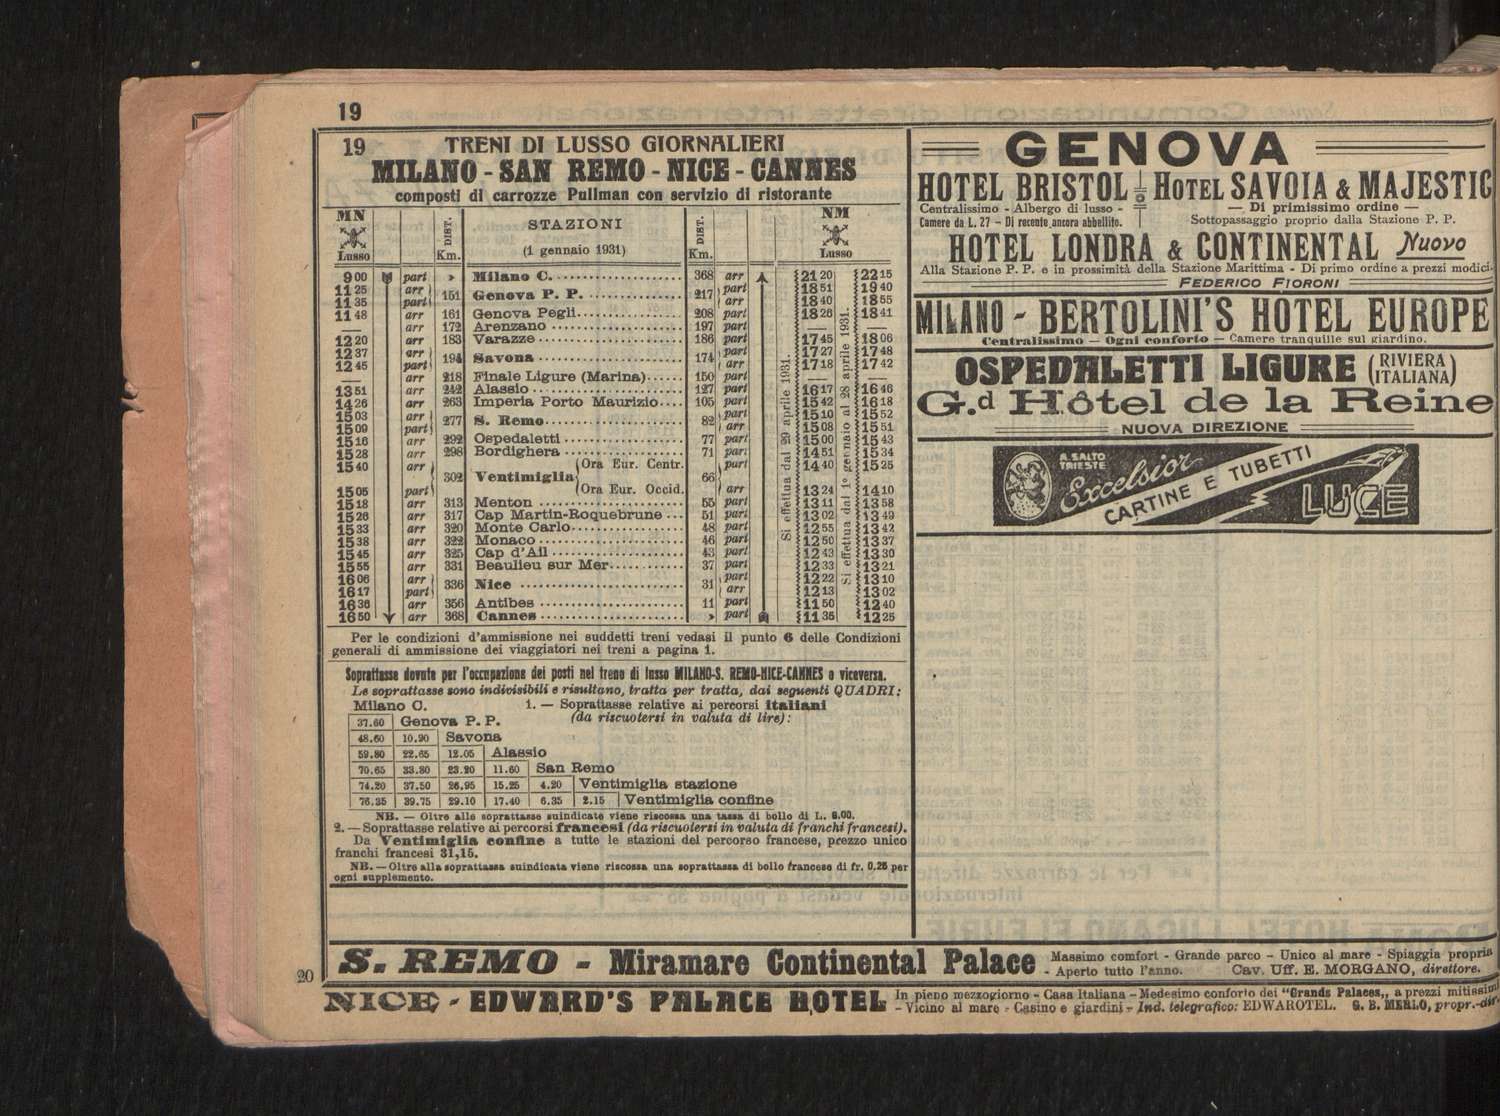 19
19 TRENI DI LUSSO GIORNALIERI
MILANO - SAN REMO - NICE - CANNES
composti di carrozze Pullman con servizio di ristorante
MN Lusso | DIST. Km. | STAZIONI (1 gennaio 1931) | DIST. Km. | NM Lusso
9 00 part » Milano C. 368 arr 21 20 22 15
11 25 arr 151 Genova P. P. 217 part 18 51 19 40
11 35 part arr 18 40 18 55
11 48 arr 161 Genova Pegli 208 part 18 26 18 41
— arr 172 Arenzano 197 part — —
12 20 arr 183 Varazze 186 part 17 45 18 06
12 37 arr 194 Savona 174 part 17 27 17 48
12 45 part arr 17 18 17 42
— arr 218 Finale Ligure (Marina) 150 part — —
13 51 arr 242 Alassio 127 part 16 17 16 46
14 26 arr 263 Imperia Porto Maurizio 105 part 15 42 16 18
15 03 arr 277 S. Remo 82 part 15 10 15 52
15 09 part arr 15 08 15 51
15 16 arr 292 Ospedaletti 77 part 15 00 15 43
15 28 arr 298 Bordighera 71 part 14 51 15 34
15 40 arr 302 Ventimiglia (Ora Eur. Centr. 66 part 14 40 15 25
15 05 part (Ora Eur. Occid. arr 13 24 14 10
15 18 arr 313 Menton 55 part 13 11 13 58
15 26 arr 317 Cap Martin-Roquebrune 51 part 13 02 13 49
15 33 arr 320 Monte Carlo 48 part 12 55 13 42
15 38 arr 322 Monaco 46 part 12 50 13 37
15 45 arr 325 Cap d'Ail 43 part 12 43 13 30
15 55 arr 331 Beaulieu sur Mer 37 part 12 33 13 21
16 06 arr 336 Nice 31 part 12 22 13 10
16 17 part arr 12 13 13 02
16 36 arr 356 Antibes 11 part 11 50 12 40
16 50 arr 368 Cannes » part 11 35 12 25
Si effettua dal 29 aprile 1931.
Si effettua dal 1° gennaio al 28 aprile 1931.
Per le condizioni d'ammissione nei suddetti treni vedasi il punto 6 delle Condizioni
generali di ammissione dei viaggiatori nei treni a pagina 1.
Soprattasse dovute per l'occupazione dei posti nel treno di lusso MILANO-S. REMO-NICE-CANNES e viceversa.
Le soprattasse sono indivisibili e risultano, tratta per tratta, dai seguenti QUADRI:
Milano C. 1. — Soprattasse relative ai percorsi italiani
37.60 Genova P. P. (da riscuotersi in valuta di lire):
48.60 10.90 Savona
59.80 22.65 12.05 Alassio
70.65 33.80 23.20 11.60 San Remo
74.20 37.50 26.95 15.25 4.20 Ventimiglia stazione
76.35 39.75 29.10 17.40 6.35 2.15 Ventimiglia confine
NB. — Oltre alle soprattasse suindicate viene riscossa una tassa di bollo di L. 6.00.
2. — Soprattasse relative ai percorsi francesi (da riscuotersi in valuta di franchi francesi).
Da Ventimiglia confine a tutte le stazioni del percorso francese, prezzo unico
franchi francesi 31,15.
NB. — Oltre alla soprattassa suindicata viene riscossa una soprattassa di bollo francese di fr. 0,25 per
ogni supplemento.
GENOVA
HOTEL BRISTOL
Centralissimo - Albergo di lusso -
Camere da L. 27 - Di recente ancora abbellito.
HOTEL SAVOIA & MAJESTIC
— Di primissimo ordine —
Sottopassaggio proprio dalla Stazione P. P.
HOTEL LONDRA & CONTINENTAL Nuovo
Alla Stazione P. P. e in prossimità della Stazione Marittima - Di primo ordine a prezzi modici.
FEDERICO FIORONI
MILANO - BERTOLINI'S HOTEL EUROPE
Centralissimo — Ogni conforto — Camere tranquille sul giardino.
OSPEDALETTI LIGURE (RIVIERA ITALIANA)
G.d Hôtel de la Reine
NUOVA DIREZIONE
A. SALTO
TRIESTE
Excelsior
CARTINE E TUBETTI
LUCE
S. REMO - Miramare Continental Palace Massimo comfort - Grande parco - Unico al mare - Spiaggia propria
- Aperto tutto l'anno. Cav. Uff. E. MORGANO, direttore.
20
NICE - EDWARD'S PALACE HOTEL In pieno mezzogiorno - Casa Italiana - Medesimo conforto dei "Grands Palaces,, a prezzi mitissimi
- Vicino al mare - Casino e giardini - Ind. telegrafico: EDWAROTEL. G. B. MERLO, propr.-dir.